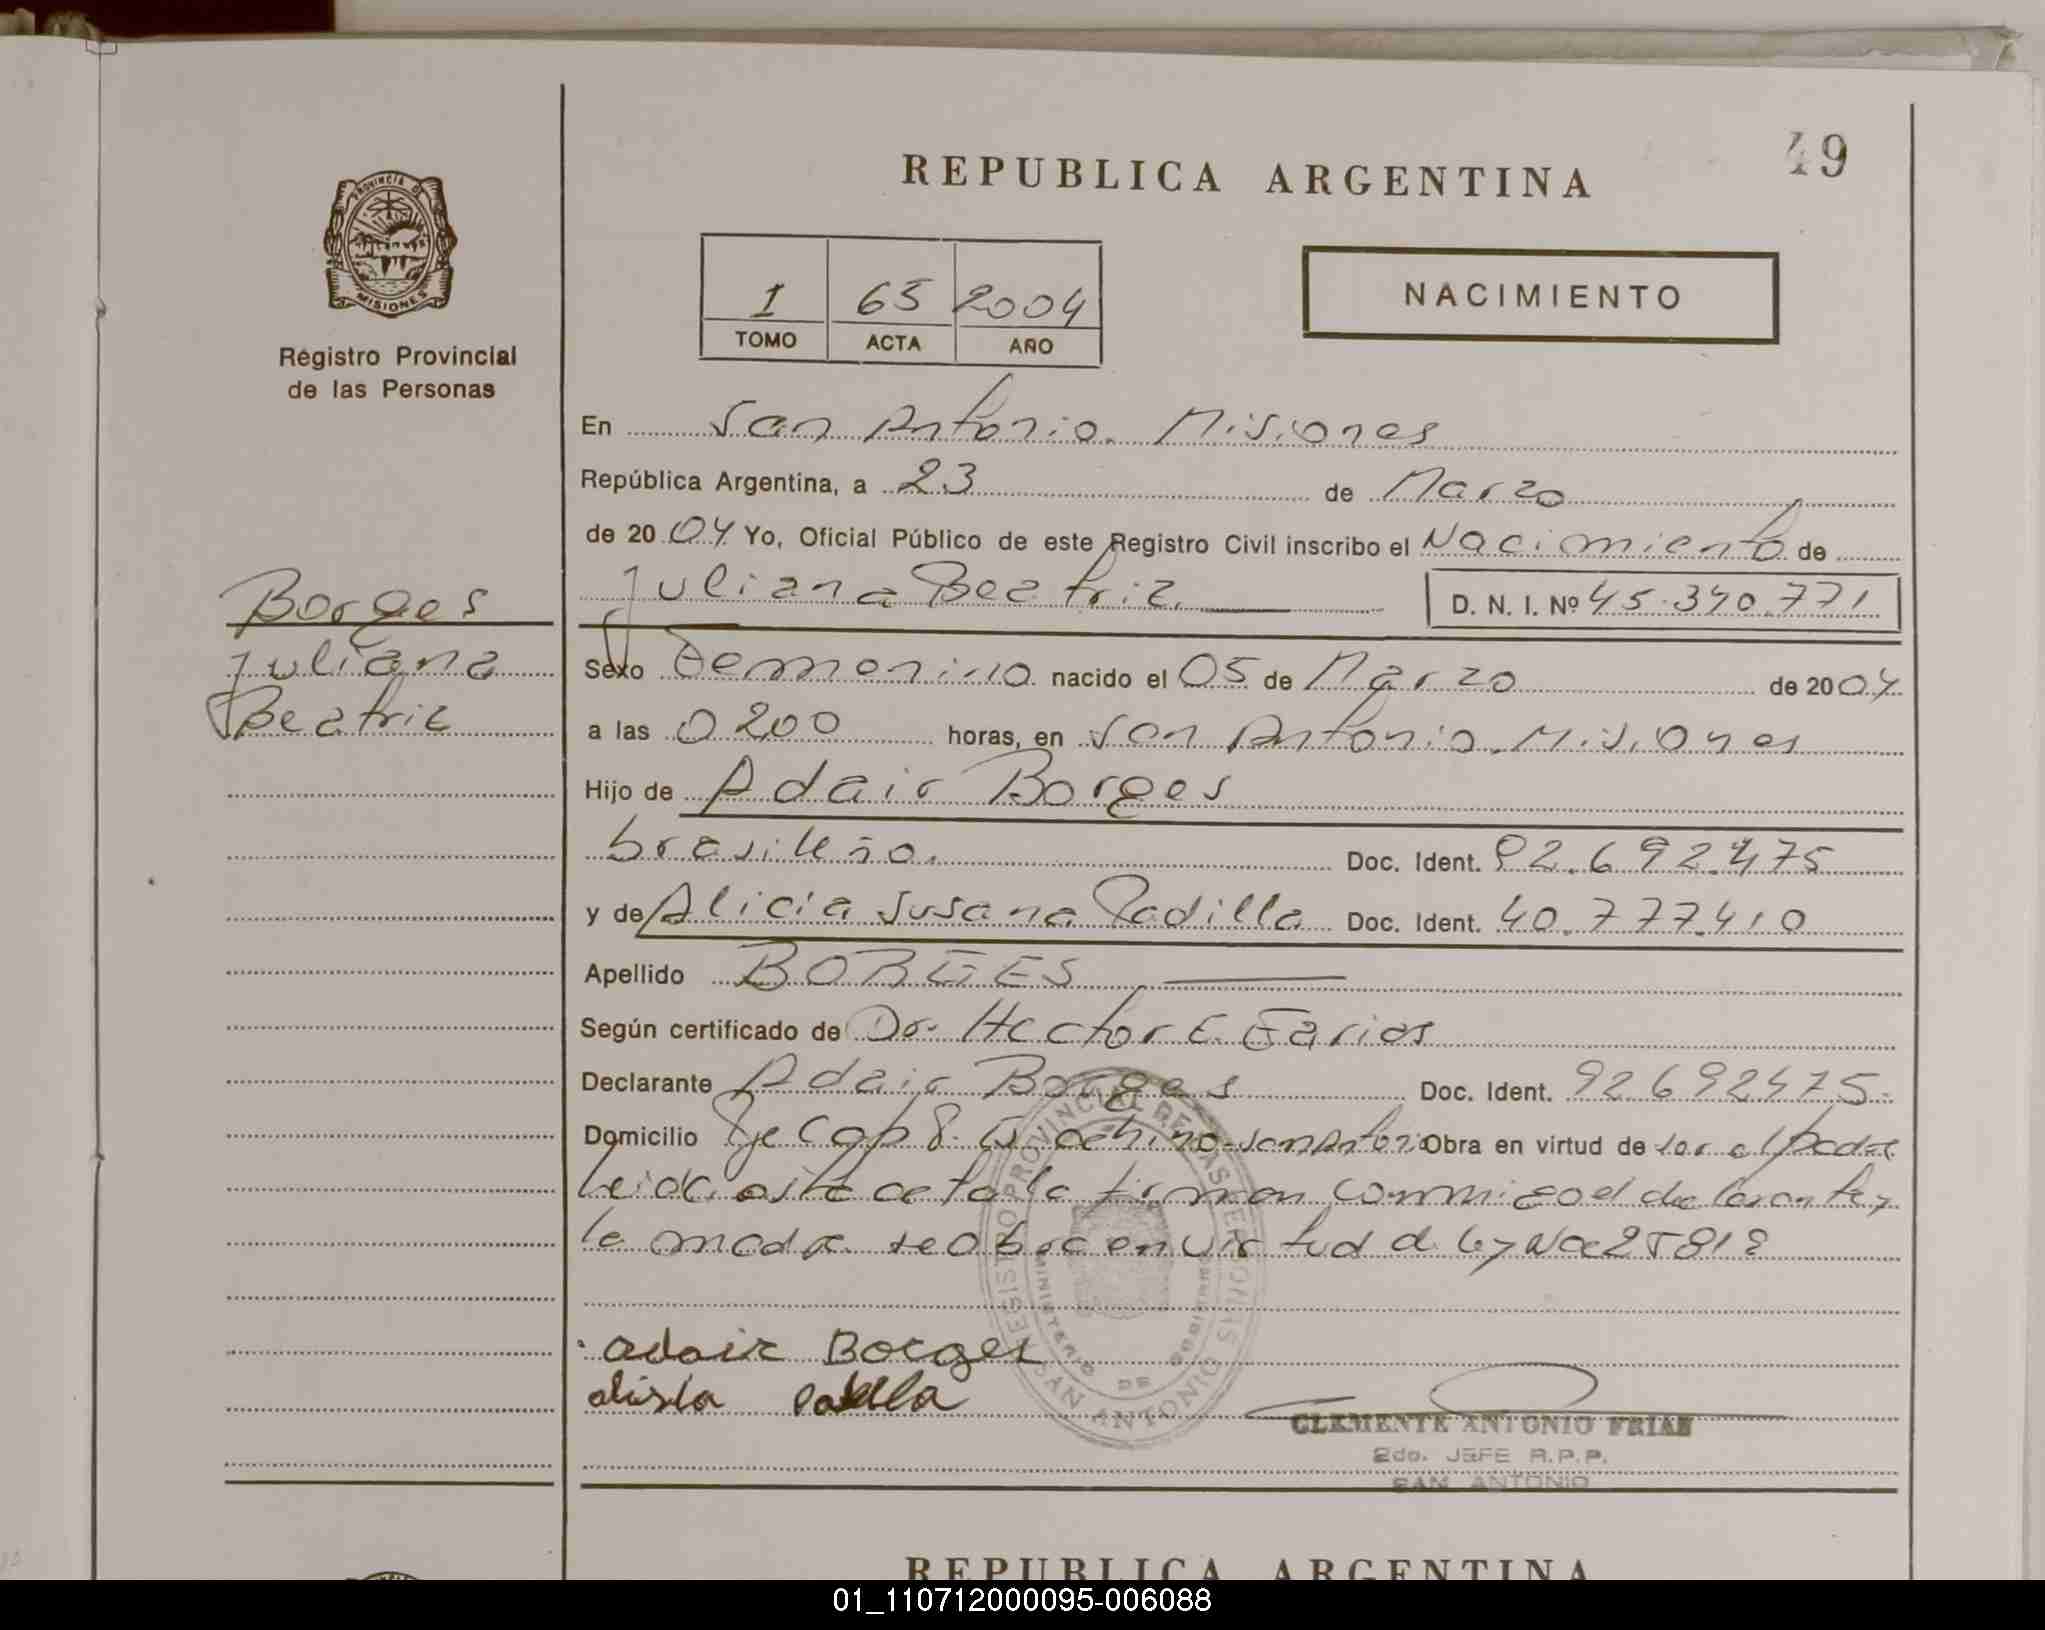 49
REPUBLICA ARGENTINA
PROVINCIA DE
MISIONES
Registro Provincial
de las Personas
1 65 2004
TOMO ACTA AÑO
NACIMIENTO
En San Antonio. Misiones
República Argentina, a 23 de Marzo
de 2004 Yo, Oficial Público de este Registro Civil inscribo el Nacimiento de
Juliana Beatriz. D. N. I. Nº 45.340.771
Borges
Juliana
Beatriz
Sexo Femenino nacido el 05 de Marzo de 2004
a las 0200 horas, en San Antonio. Misiones
Hijo de Adair Borges
brasileño. Doc. Ident. 92.692.475
y de Alicia Susana Padilla Doc. Ident. 40.777.410
Apellido BORGES
Según certificado de Dr. Hector E. Farias
Declarante Adair Borges Doc. Ident. 92692475.
Domicilio San Antonio Obra en virtud de ser el padre
Leida esta acta la firman conmigo el declarante y
la madre se obra en virtud d ley Nº 25818
REGISTRO PROVINCIAL DE LAS PERSONAS
MINISTERIO DE GOBIERNO
SAN ANTONIO
adair Borges
alisia Padilla
CLEMENTE ANTONIO FRIAS
2do. JEFE R.P.P.
SAN ANTONIO
REPUBLICA ARGENTINA
01_110712000095-006088